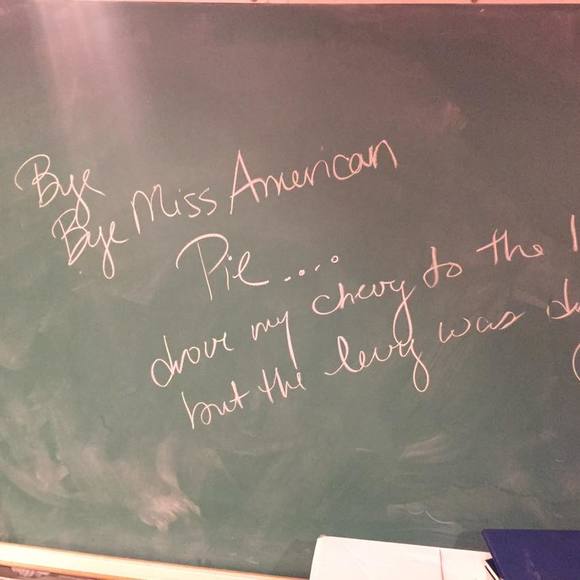 Bye
Bye Miss American
Pie....
drove my chevy to the
but the levy was